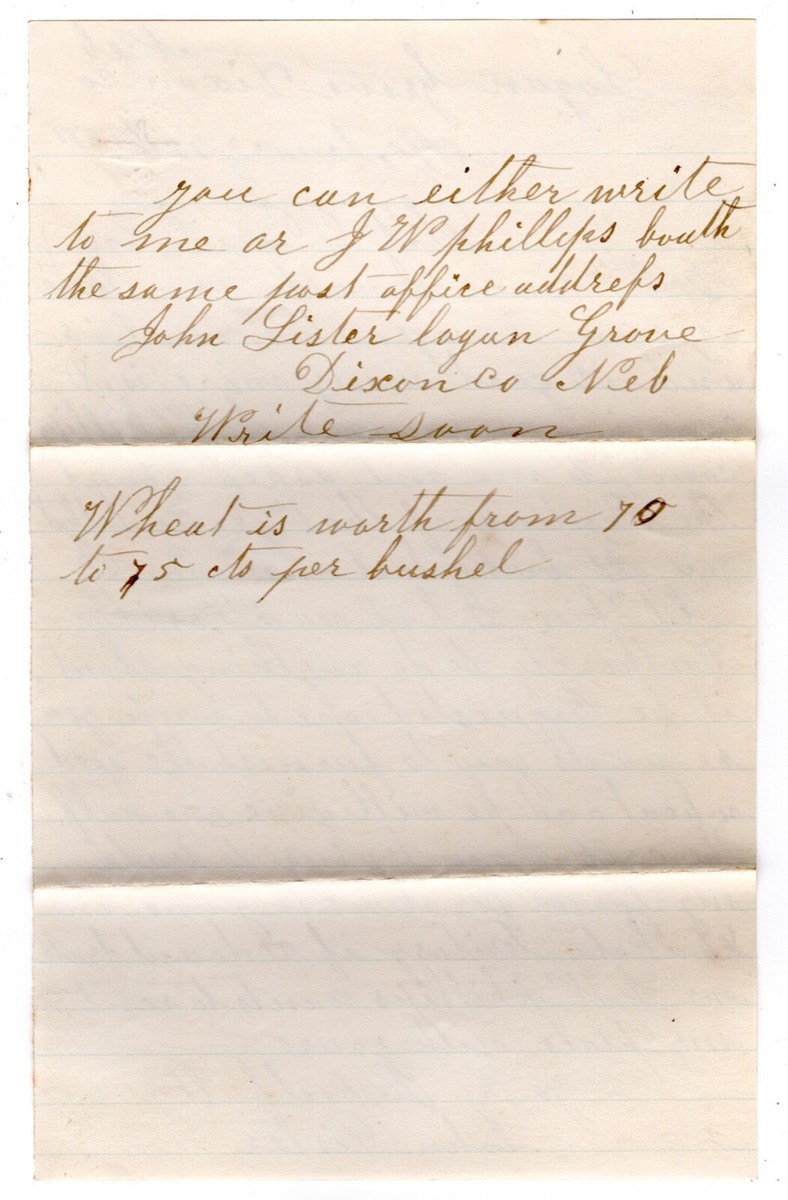 you can either write
to me or J W phillips bouth
the same post office addrefs
John Lister logan Grove
Dixon co Neb
Write soon
Wheat is worth from 70
to 75 cts per bushel